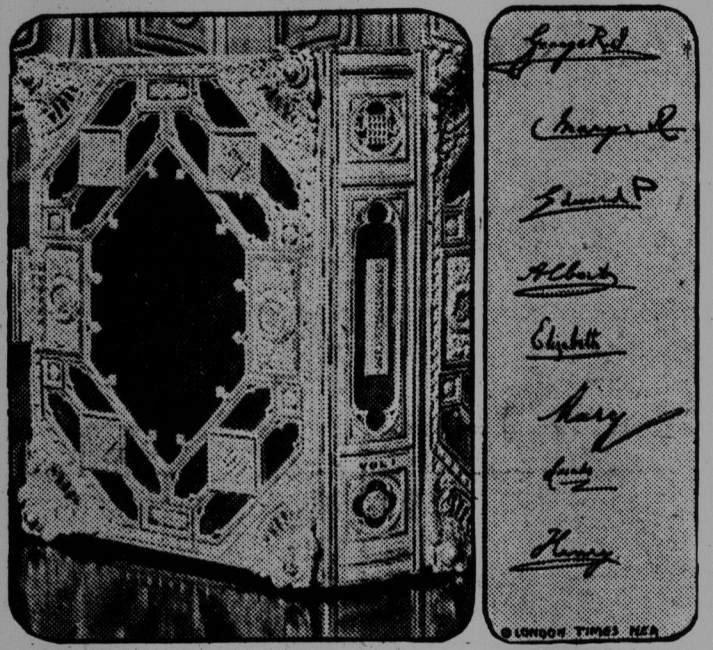 VOL I
George R I
Mary R
Edward P
Albert
Elizabeth
Mary
Henry
© LONDON TIMES NEA